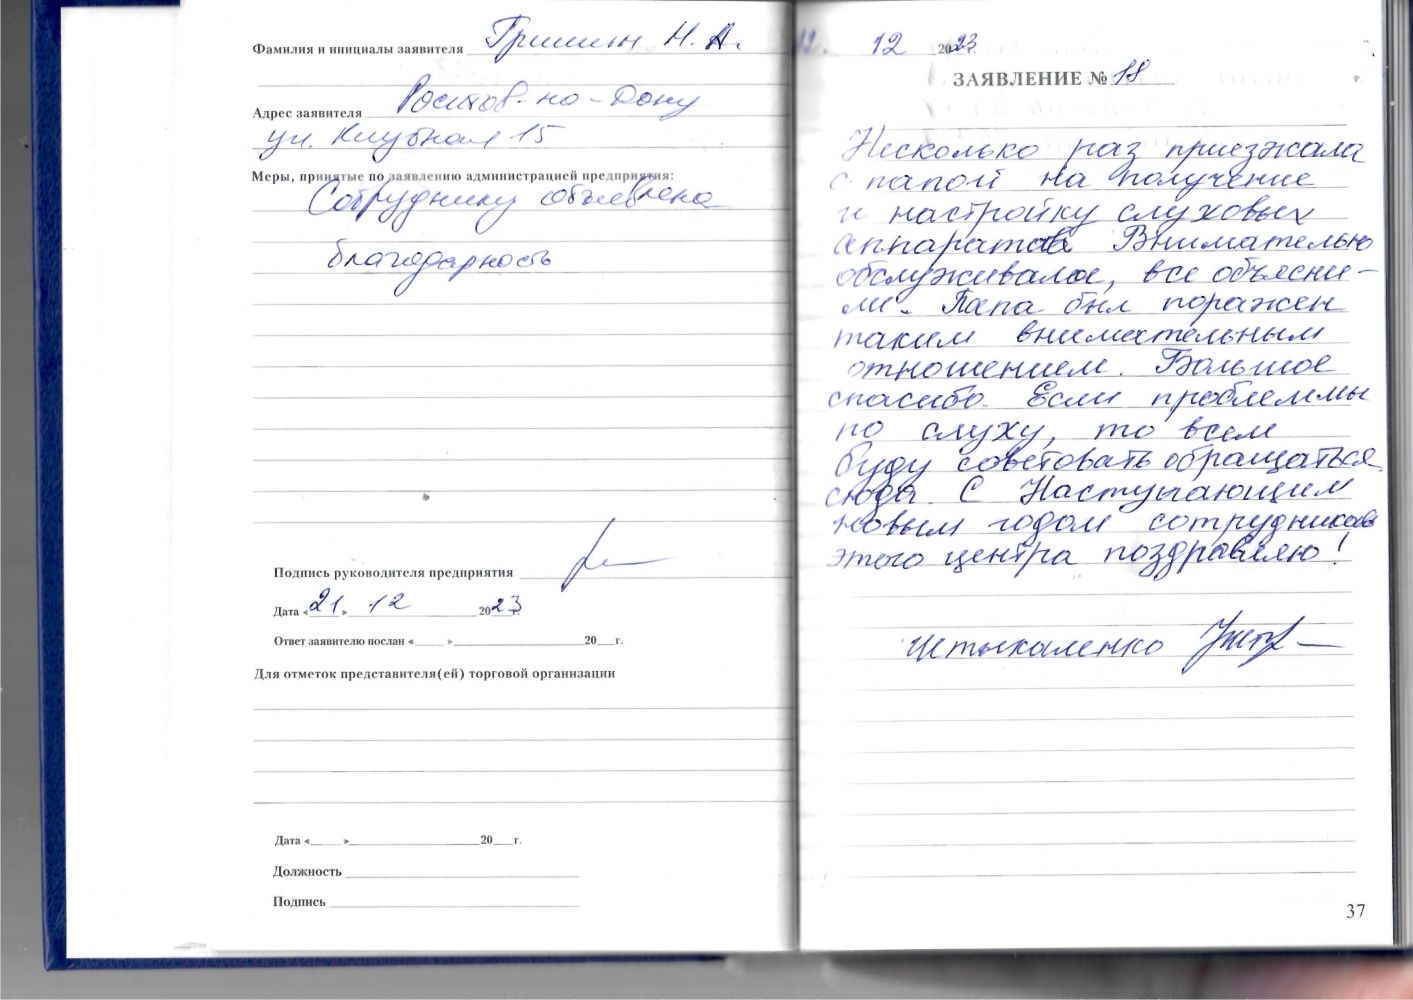 Фамилия и инициалы заявителя Гришин Н. А.
Адрес заявителя Ростов-на-Дону
ул. Клубная 15
Меры, принятые по заявлению администрацией предприятия:
Сотруднику объявлена
благодарность
Подпись руководителя предприятия
Дата «21» 12 2023 г.
Ответ заявителю послан «___» 20__г.
Для отметок представителя(ей) торговой организации
Дата «___» 20__г.
Должность
Подпись
12 2023 г.
ЗАЯВЛЕНИЕ № 18
Несколько раз приезжала
с папой на получение
и настройку слуховых
аппаратов Внимательно
обслуживали, все объясни-
ли. Папа был поражен
таким внимательным
отношением. Большое
спасибо. Если проблеммы
по слуху, то всем
буду советовать обращаться
сюда. С Наступающим
новым годом сотрудников
этого центра поздравляю!
37